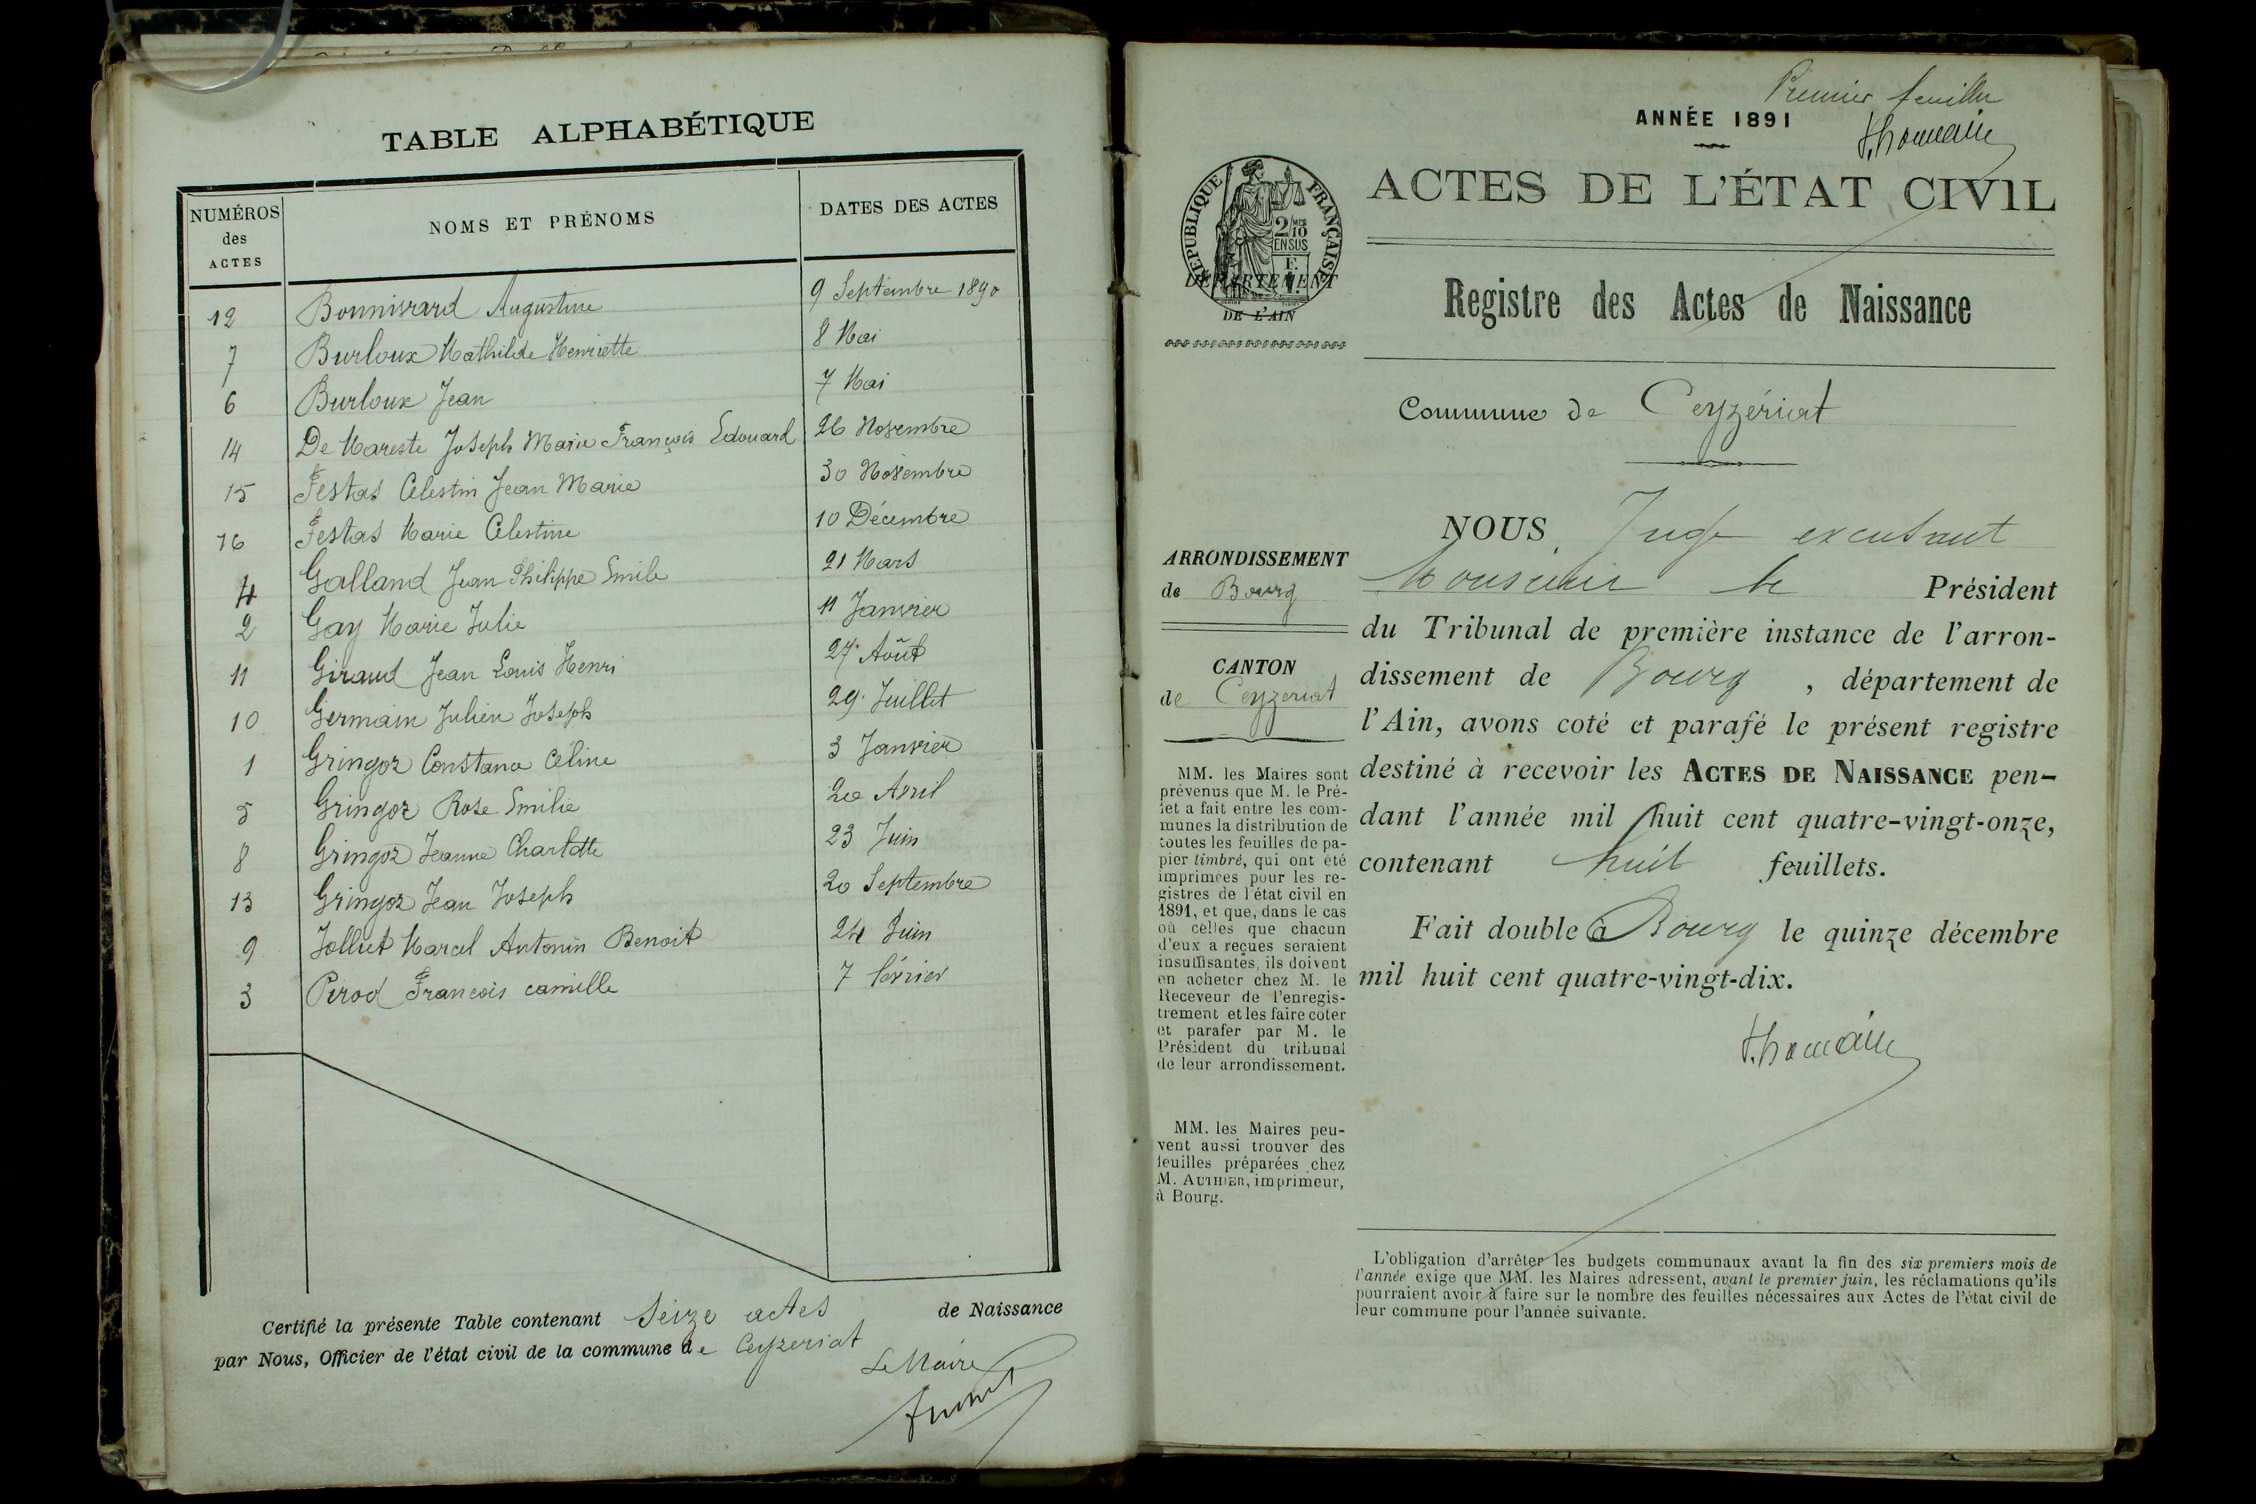 TABLE ALPHABÉTIQUE
NUMÉROS des ACTES NOMS ET PRÉNOMS DATES DES ACTES
12 Bonnivard Augustine 9 Septembre 1890
7 Burloux Mathilde Henriette 8 Mai
6 Burloux Jean 7 Mai
14 De Mareste Joseph Marie François Edouard 26 Novembre
15 Festas Célestin Jean Marie 30 Novembre
16 Festas Marie Célestine 10 Décembre
4 Galland Jean Philippe Emile 21 Mars
2 Gay Marie Julie 11 Janvier
11 Giraud Jean Louis Henri 27 Août
10 Germain Julien Joseph 29 Juillet
1 Gringoz Constance Céline 3 Janvier
5 Gringoz Rose Emilie 20 Avril
8 Gringoz Jeanne Charlotte 23 Juin
13 Gringoz Jean Joseph 20 Septembre
9 Jolliet Marcel Antonin Benoit 24 Juin
3 Pirod François camille 7 février
Certifié la présente Table contenant Seize actes de Naissance
par Nous, Officier de l'état civil de la commune de Ceyzeriat
Le Maire
Premier feuillet
ANNÉE 1891
Thomain
ACTES DE L'ÉTAT CIVIL
RÉPUBLIQUE FRANÇAISE
2/10 EN SUS
DÉPARTEMENT
DE L'AIN
Registre des Actes de Naissance
Commune de Ceyzériat
ARRONDISSEMENT
de Bourg
CANTON
de Ceyzeriat
MM. les Maires sont
prévenus que M. le Pré-
fet a fait entre les com-
munes la distribution de
toutes les feuilles de pa-
pier timbré, qui ont été
imprimées pour les re-
gistres de l'état civil en
1891, et que, dans le cas
où celles que chacun
d'eux a reçues seraient
insuffisantes, ils doivent
en acheter chez M. le
Receveur de l'enregis-
trement et les faire coter
et parafer par M. le
Président du tribunal
de leur arrondissement.
MM. les Maires peu-
vent aussi trouver des
feuilles préparées chez
M. AUTHIER, imprimeur,
à Bourg.
NOUS, Juge excusant
Monsieur le Président
du Tribunal de première instance de l'arron-
dissement de Bourg, département de
l'Ain, avons coté et parafé le présent registre
destiné à recevoir les ACTES DE NAISSANCE pen-
dant l'année mil huit cent quatre-vingt-onze,
contenant huit feuillets.
Fait double à Bourg le quinze décembre
mil huit cent quatre-vingt-dix.
Thomain
L'obligation d'arrêter les budgets communaux avant la fin des six premiers mois de
l'année exige que MM. les Maires adressent, avant le premier juin, les réclamations qu'ils
pourraient avoir à faire sur le nombre des feuilles nécessaires aux Actes de l'état civil de
leur commune pour l'année suivante.